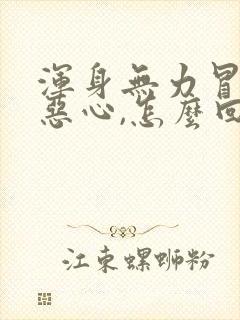 渾身無力冒
惡心,怎麼回
江東螺螄粉